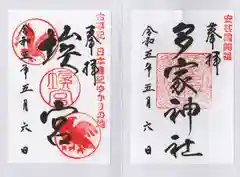 奉拝
多家神社
令和五年五月六日
古事記 日本書紀ゆかりの地
奉拝
埃宮
令和五年五月六日